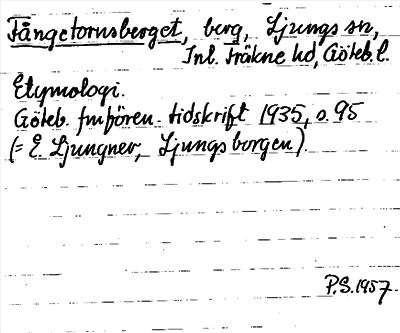 Fångetornsberget, berg, Ljungs sn,
Inl. Fräkne hd, Göteb. l.
Etymologi.
Göteb. fmfören. tidskrift 1935, s. 95
(= E Ljungner, Ljungsborgen)
P.S. 1957.